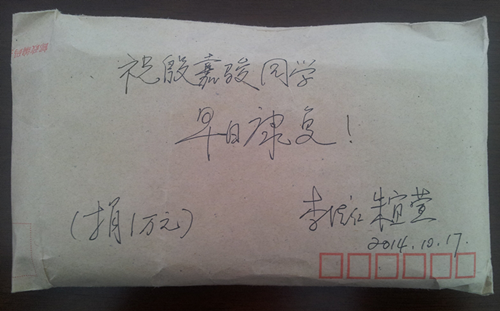 祝殷嘉骏同学
早日康复!
(捐1万元)
李 朱宜萱
2014.10.17.